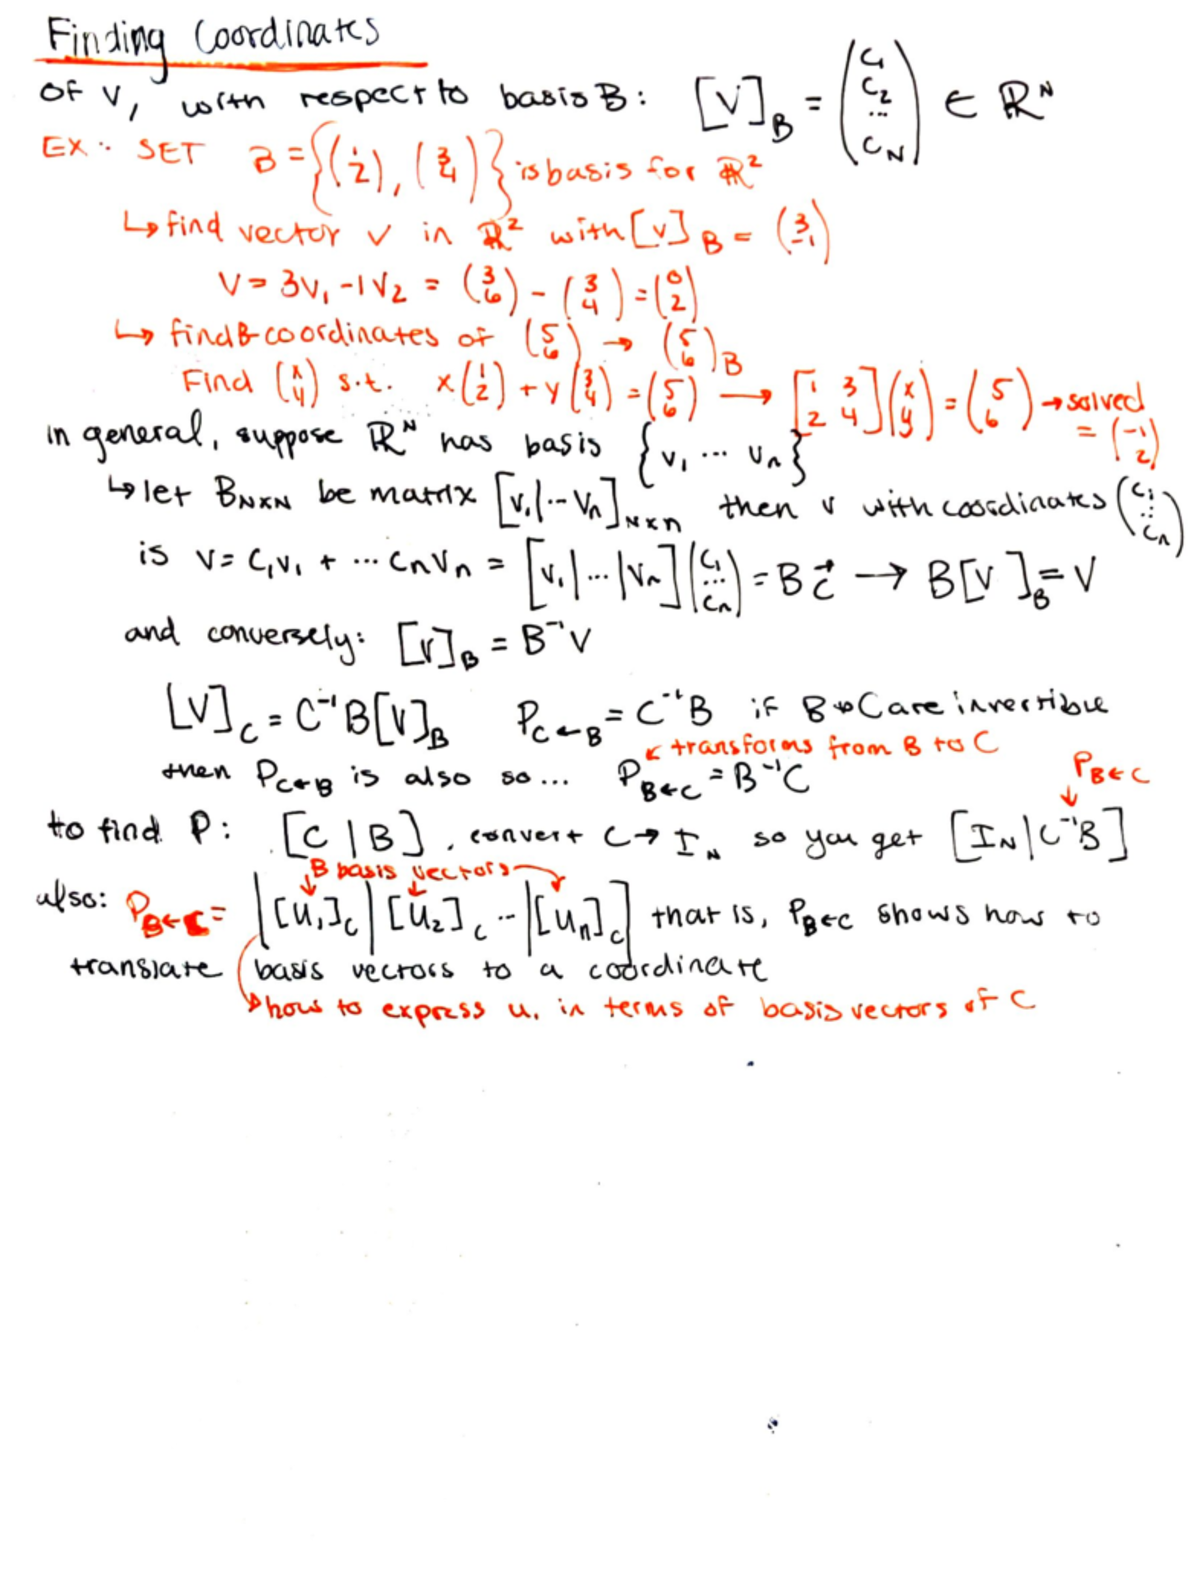 Finding Coordinates
of v, with respect to basis B: [V]_B = (C₁ C₂ ... C_N) ∈ ℝᴺ
EX: SET B = {(1 2), (3 4)} is basis for ℝ²
↳ find vector v in ℝ² with [v]_B = (3 -1)
V = 3V₁ - 1V₂ = (3 6) - (3 4) = (0 2)
↳ find B-coordinates of (5 6) → (5 6)_B
Find (x y) s.t. x(1 2) + y(3 4) = (5 6) → [1 3 2 4](x y) = (5 6) → solved = (-1 2)
in general, suppose ℝᴺ has basis {v₁ ... vₙ}
↳ let B_N×N be matrix [v₁|...Vₙ]_N×n then v with coordinates (C₁ ⋮ Cₙ)
is V = C₁V₁ + ... CₙVₙ = [v₁|...|Vₙ](C₁ ... Cₙ) = Bc⃗ → B[V]_B = V
and conversely: [V]_B = B⁻¹V
[V]_C = C⁻¹B[V]_B P_C←B = C⁻¹B if B & C are invertible
↖ transforms from B to C
then P_C←B is also so... P_B←C = B⁻¹C
P_B←C
↓
to find P: [C | B], convert C → I_N so you get [I_N | C⁻¹B]
B basis vectors
also: P_B←C = [[U₁]_C | [U₂]_C ... | [Uₙ]_C] that is, P_B←C shows how to
translate basis vectors to a coordinate
↳ how to express u₁ in terms of basis vectors of C